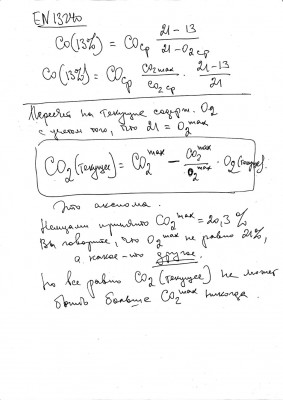 EN 13240
CO(13%) = CO ср 21 - 13 / 21 - O2 ср
CO(13%) = CO ср CO2 max / CO2 ср · 21-13 / 21
Пересчёт на текущие содерж. O2
с учетом того, что 21 = O2 max
CO2 (текущее) = CO2 max - CO2 max / O2 max · O2 (текущее)
Это аксиома.
Немцами принято CO2 max = 20,3 %
Вы говорите, что O2 max не равно 21%,
а какое-то другое.
Но все равно CO2 (текущее) не может
быть больше CO2 max никогда.